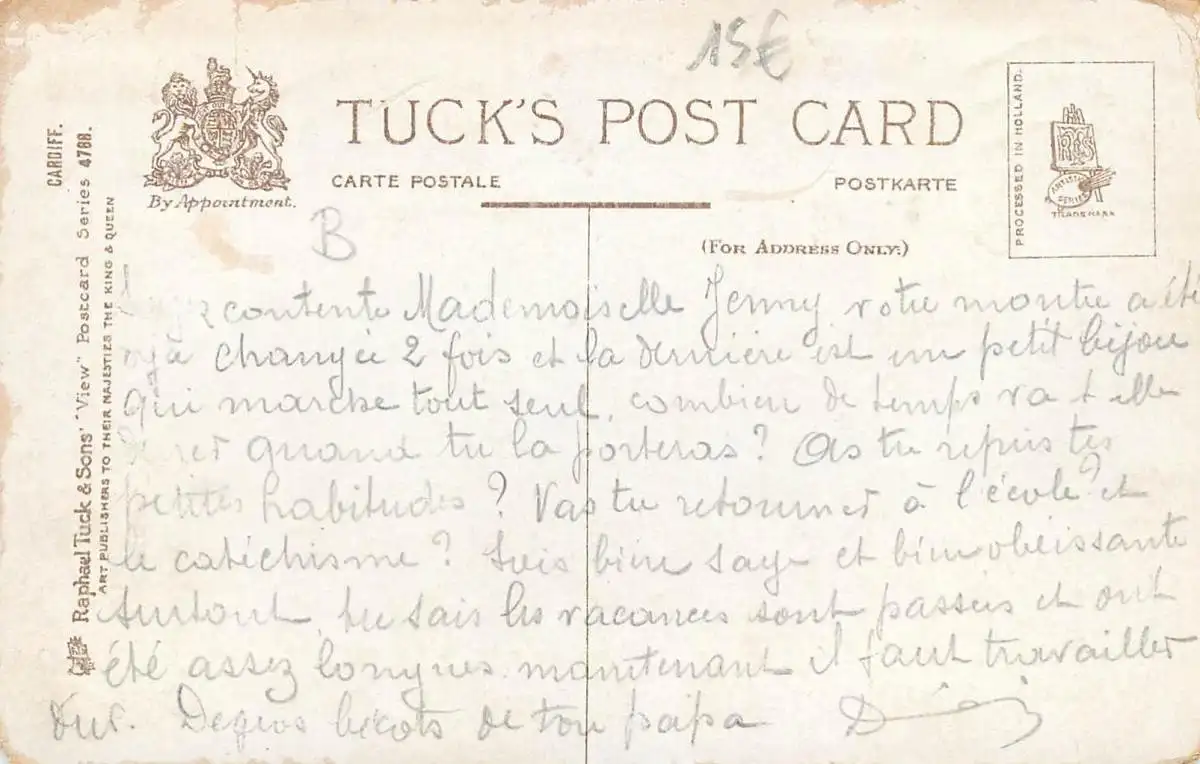 15€
TUCK'S POST CARD
CARTE POSTALE
POSTKARTE
By Appointment.
(FOR ADDRESS ONLY.)
PROCESSED IN HOLLAND.
ARTISTIC SERIES
TRADE MARK
CARDIFF.
Raphael Tuck & Sons' "View" Postcard Series 4788.
ART PUBLISHERS TO THEIR MAJESTIES THE KING & QUEEN
B
contente Mademoiselle Jenny votre montre a été
changée 2 fois et la dernière est un petit bijou
qui marche tout seul, combien de temps va t elle
quand tu la porteras? As tu repris tes
petites habitudes? Vas tu retourner à l'école? et
le catéchisme? Sois bien sage et bien obéissante
surtout, tu sais les vacances sont passées et ont
été assez longues maintenant il faut travailler
dur. De gros bécots de ton papa